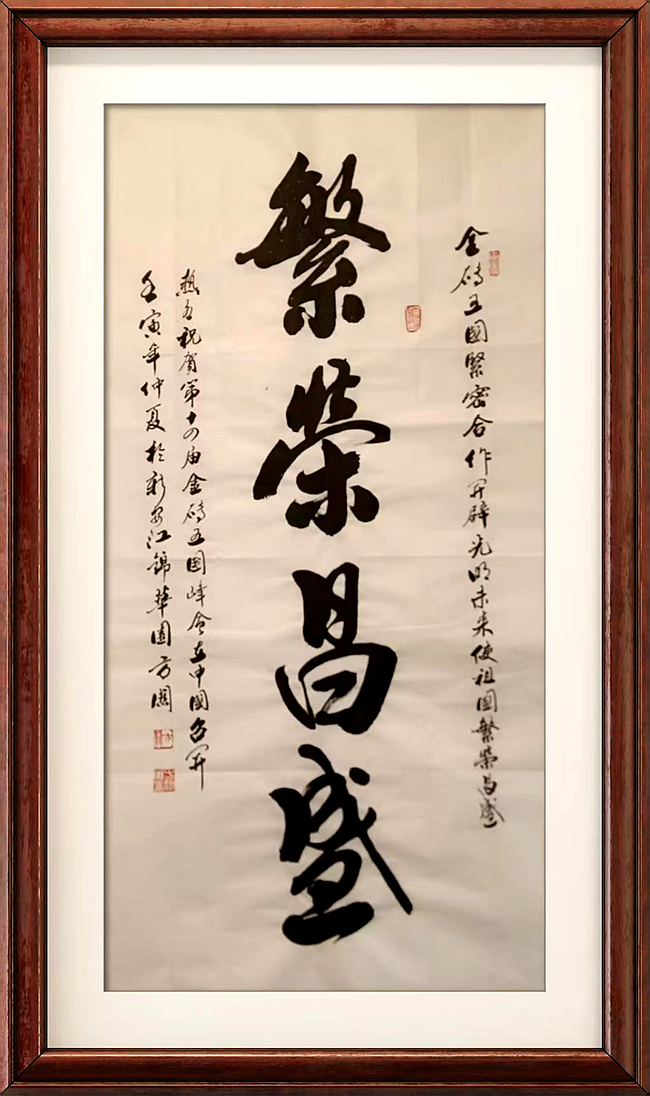 金砖五國緊密合作开辟光明未来使祖国繁榮昌盛
繁榮昌盛
热烈祝贺第十四届金砖五国峰会在中國召开
壬寅年仲夏於新安江錦華園方